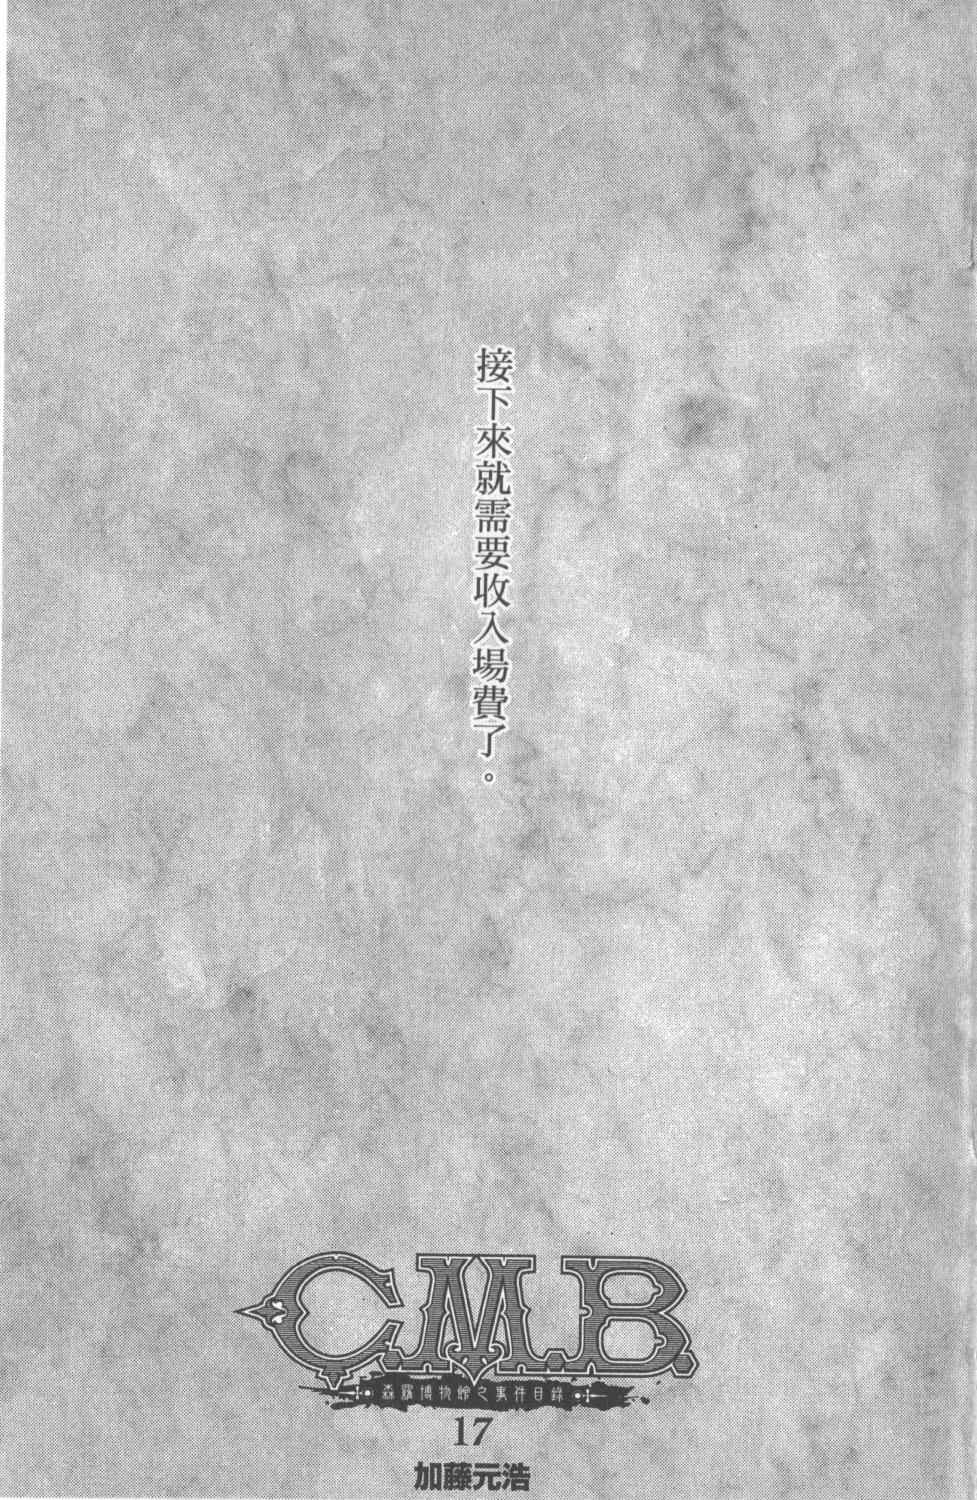 接下來就需要收入場費了。
C.M.B.
森羅博物館之事件目錄
17
加藤元浩